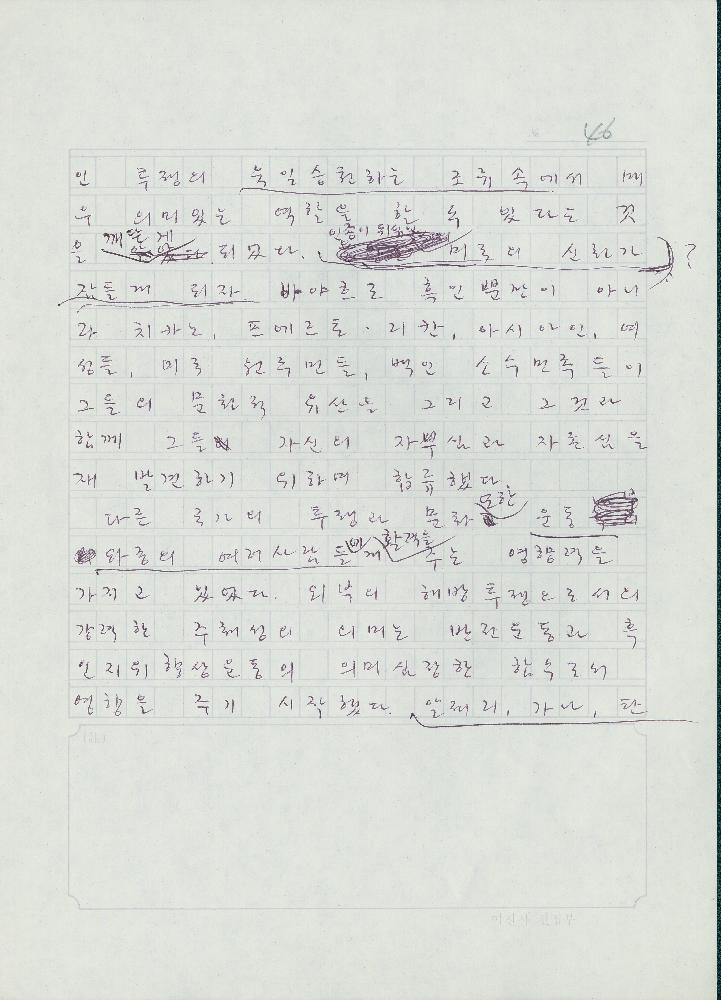 46
인 투쟁의 욱일승천하는 조류 속에서 매
우 의미있는 역할을 할 수 있다는 것
을 깨닫게 되었다. 미국의 신화가 ?
되자 바야흐로 흑인뿐만이 아니
라 치카노, 프에르토·리칸, 아시아인, 여
성들, 미국 원주민들, 백인 소수민족들이
그들의 문헌적 유산을 그리고 그것과
함께 그들 가신의 자부심과 자존심을
재 발견하기 위하여 합류했다.
다른 국가의 투쟁과 문화 또한 운동
와중의 여러사람들에게 활력을 주는 영향력을
가지고 있었다. 외부의 해방투쟁으로서의
강력한 주체성의 의미는 반전운동과 흑
인지위향상운동의 의미심장한 함수로서
영향을 주기 시작했다. 알제리, 가나, 탄